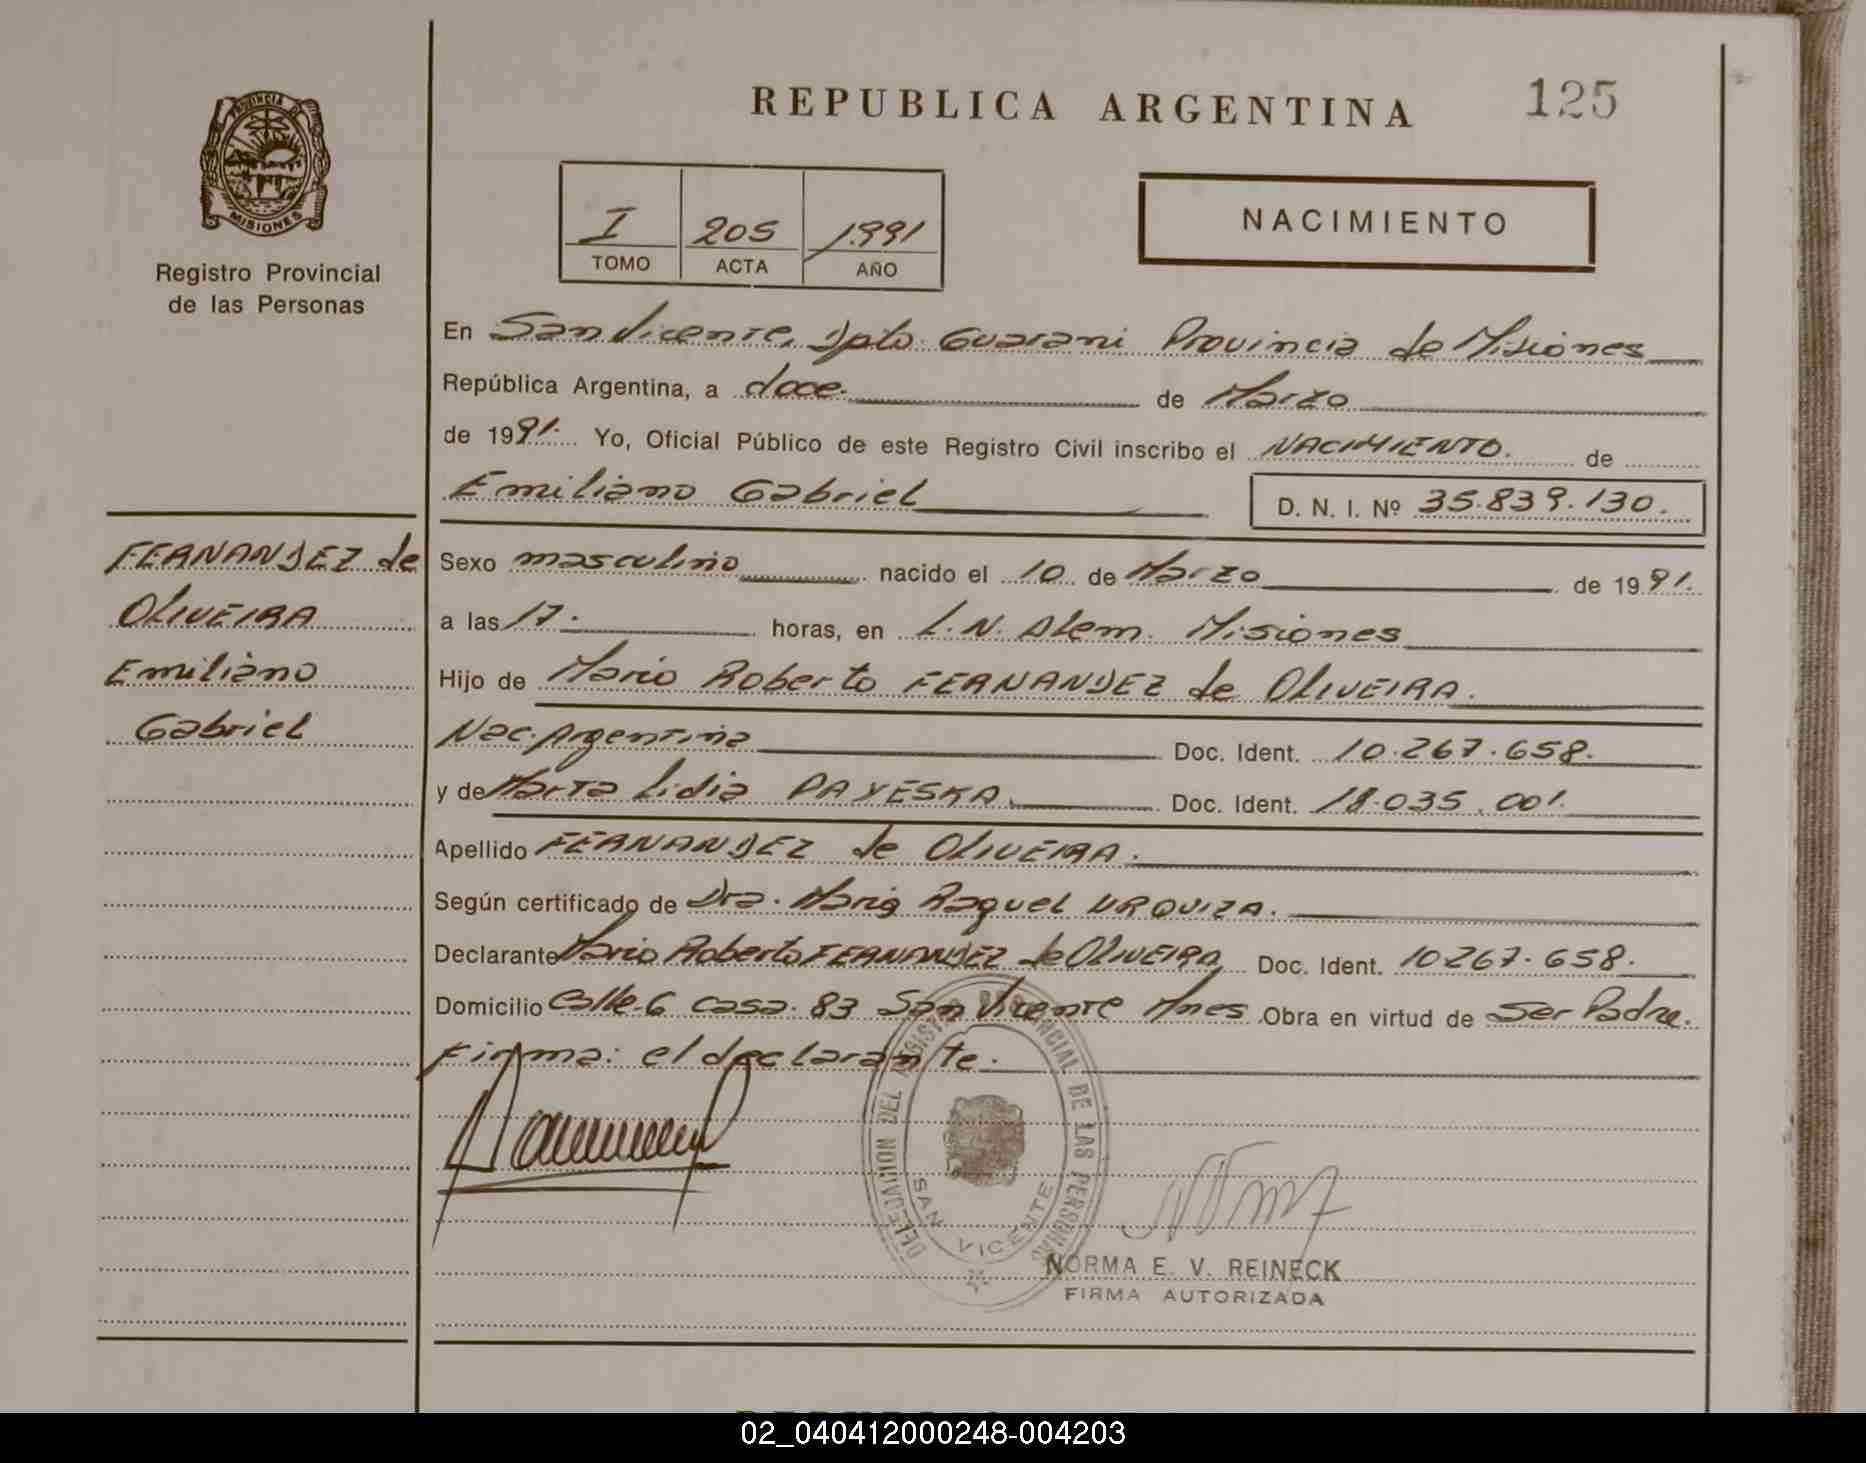 REPUBLICA ARGENTINA 125
PROVINCIA DE
MISIONES
Registro Provincial
de las Personas
I 205 1991
TOMO ACTA AÑO
NACIMIENTO
En San Vicente, Dpto. Guarani Provincia de Misiones
República Argentina, a doce. de Marzo
de 1991. Yo, Oficial Público de este Registro Civil inscribo el NACIMIENTO. de
Emiliano Gabriel D. N. I. Nº 35.839.130.
FERNANDEZ de
OLIVEIRA
Emiliano
Gabriel
Sexo masculino nacido el 10 de Marzo de 1991.
a las 17. horas, en L.N. Alem. Misiones
Hijo de Mario Roberto FERNANDEZ de OLIVEIRA.
Nac. Argentina Doc. Ident. 10.267.658.
y de Marta Lidia PAYESKA. Doc. Ident. 18.035.001.
Apellido FERNANDEZ de OLIVEIRA.
Según certificado de Dra. Maria Raquel URQUIZA.
Declarante Mario Roberto FERNANDEZ de OLIVEIRA Doc. Ident. 10267.658.
Domicilio Calle 6 casa. 83 San Vicente Mnes. Obra en virtud de Ser Padre.
Firma: el declarante.
DELEGACION DEL REGISTRO PROVINCIAL DE LAS PERSONAS
SAN VICENTE
NORMA E. V. REINECK
FIRMA AUTORIZADA
02_040412000248-004203